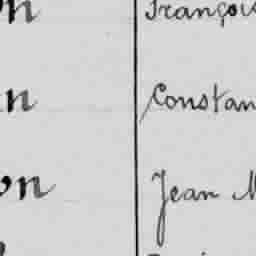 on François
n Constan
on Jean M